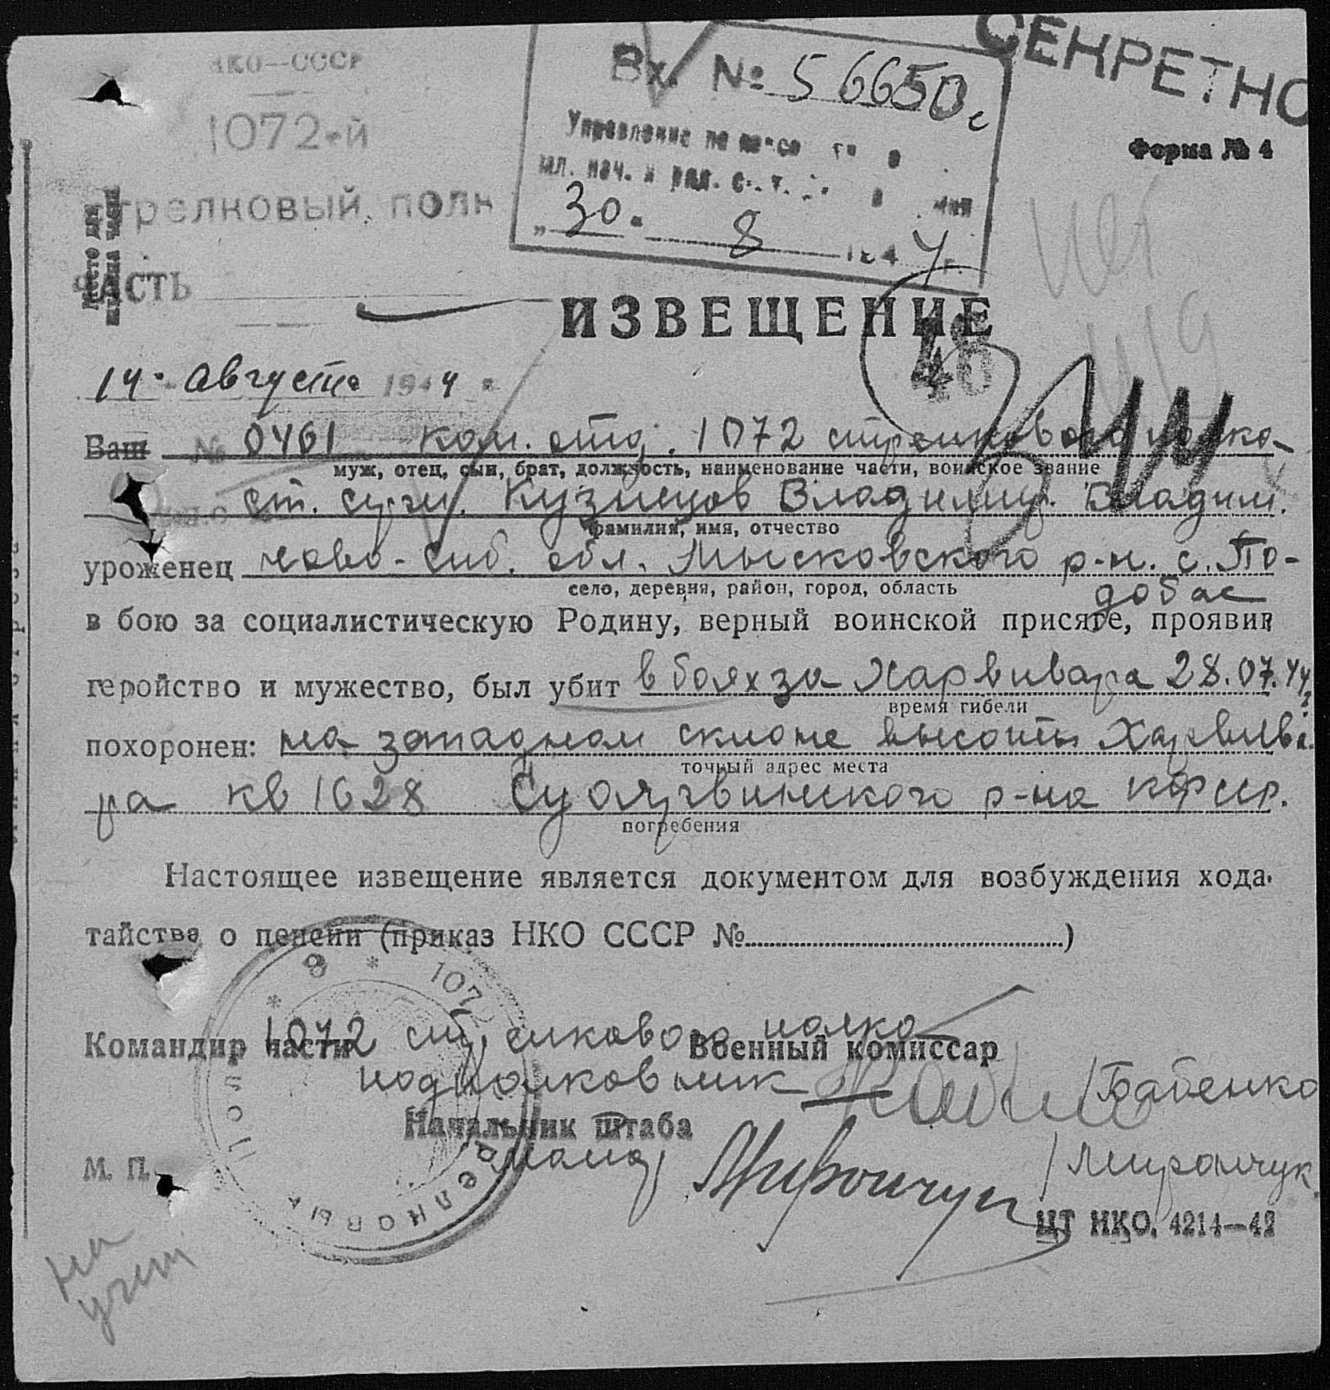 НКО—СССР
1072-й
стрелковый полк
часть
Место для
штампа части
СЕКРЕТНО
Форма № 4
Вх. № 56650с
Управление по
мл. нач. и ряд.
„30" 8 1944 г.
ИЗВЕЩЕНИЕ
48
14 августа 1944
Ваш № 0461 ком. отд. 1072 стрелкового полка
муж, отец, сын, брат, должность, наименование части, воинское звание
ст. серж. Кузнецов Владимир Владим.
фамилия, имя, отчество
уроженец ново-сиб. обл. Мысковского р-н. с. По-
село, деревня, район, город, область
добас
в бою за социалистическую Родину, верный воинской присяге, проявив
геройство и мужество, был убит в боях за Харвивара 28.07.44
время гибели
похоронен: на западном склоне высоты Харвива
точный адрес места
ра кв 1628 Суоярвинского р-на КФССР.
погребения
Настоящее извещение является документом для возбуждения хода-
тайства о пенсии (приказ НКО СССР №)
1072 стрелкового полка
Командир части Военный комиссар
подполковник /Бабенко
Начальник штаба
майор Мирончук /Мирончук
М. П.
ЦТ НКО. 4214—42
на
учет